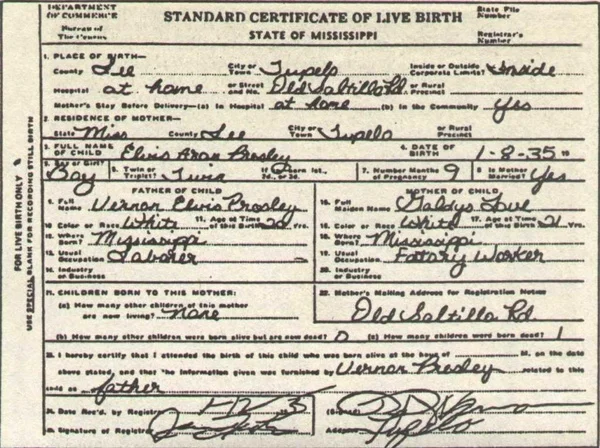 DEPARTMENT OF COMMERCE
Bureau of The Census
STANDARD CERTIFICATE OF LIVE BIRTH
STATE OF MISSISSIPPI
State File Number
Registrar's Number
FOR LIVE BIRTH ONLY
USE SPECIAL BLANK FOR RECORDING STILL BIRTH
1. PLACE OF BIRTH—
County Lee City or Town Tupelo Inside or Outside Corporate Limits? Inside
Hospital at home or Street and No. Old Saltillo Rd or Rural Precinct
Mother's Stay Before Delivery—(a) In Hospital at home (b) In the Community Yes
2. RESIDENCE OF MOTHER—
State Miss County Lee City or Town Tupelo or Rural Precinct
3. FULL NAME OF CHILD Elvis Aron Presley 4. DATE OF BIRTH 1-8-35 19
5. Boy or Girl? Boy 6. Twin or Triplet? Twin If born 1st, 2d, or 3d. 7. Number Months of Pregnancy 9 8. Is Mother Married? Yes
FATHER OF CHILD
9. Full Name Vernon Elvis Presley
10. Color or Race White 11. Age at Time of this Birth 20 Yrs.
12. Where Born? Mississippi
13. Usual Occupation Laborer
14. Industry or Business
MOTHER OF CHILD
15. Full Maiden Name Galdys Love
16. Color or Race White 17. Age at Time of this Birth 21 Yrs.
18. Where Born? Mississippi
19. Usual Occupation Fatory Worker
20. Industry or Business
21. CHILDREN BORN TO THIS MOTHER:
(a) How many other children of this mother are now living? None
22. Mother's Mailing Address for Registration Notice
Old Saltillo Rd
(b) How many other children were born alive but are now dead? 0 (c) How many children were born dead? 1
23. I hereby certify that I attended the birth of this child who was born alive at the hour of M. on the date
above stated, and that the information given was furnished by Vernon Presley related to this
child as father
24. Date Rec'd. by Registrar (Signed)
25. Signature of Registrar Tupelo